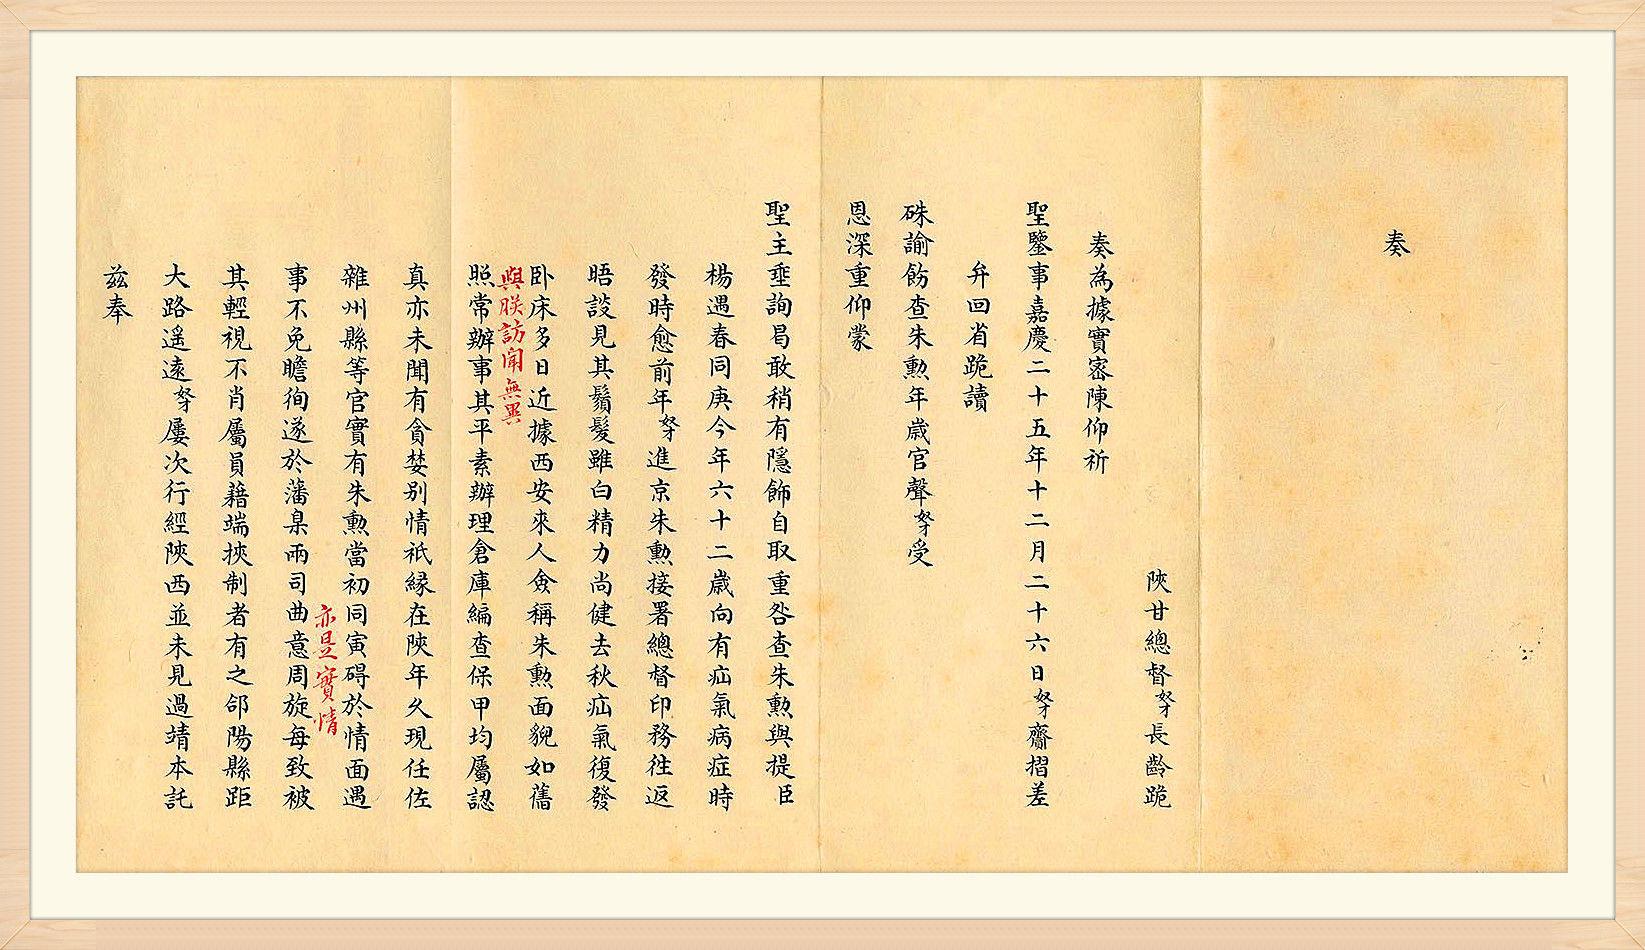 奏
陝甘總督奴才長齡跪
奏為據實密陳仰祈
聖鑒事嘉慶二十五年十二月二十六日奴才齎摺差
弁回省跪讀
硃諭飭查朱勲年歲官聲奴才受
恩深重仰蒙
聖主垂詢曷敢稍有隱飾自取重咎查朱勲與提臣
楊遇春同庚今年六十二歲向有疝氣病症時
發時愈前年奴才進京朱勲接署總督印務往返
晤談見其鬚髮雖白精力尚健去秋疝氣復發
卧床多日近據西安來人僉稱朱勲面貌如舊
與朕訪聞無異
照常辦事其平素辦理倉庫編查保甲均屬認
真亦未聞有貪婪别情祇緣在陝年久現任佐
雜州縣等官實有朱勲當初同寅碍於情面遇
亦是實情
事不免瞻徇遂於藩臬兩司曲意周旋每致被
其輕視不肖屬員藉端挾制者有之郃陽縣距
大路遥遠奴才屢次行經陝西並未見過靖本託
兹奉